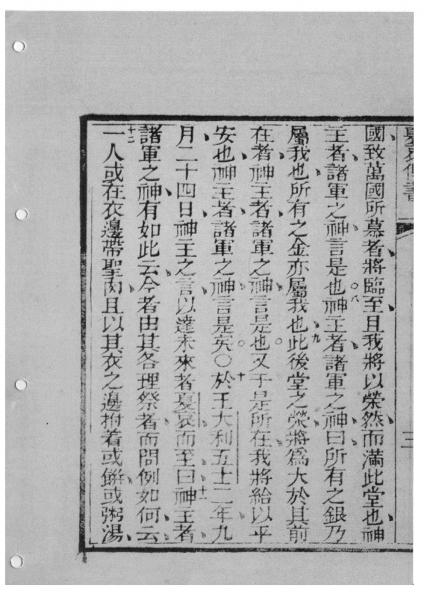 國致萬國所慕者將臨至且我將以榮然而滿此堂也神
王者諸軍之神言是也八神王者諸軍之神曰所有之銀乃
屬我也所有之金亦屬我也九此後堂之榮將爲大於其前
在者神王者諸軍之神言是也又于是所在我將給以平
安也神王者諸軍之神言是矣○十於王大利五士二年九
月二十四日神王之言以達未來者戛哀而至曰十一神王者
諸軍之神有如此云今者由其各理祭者而問例如何云
十二一人或在衣邊帶聖肉且以其衣之邊拊着或餅或粥湯